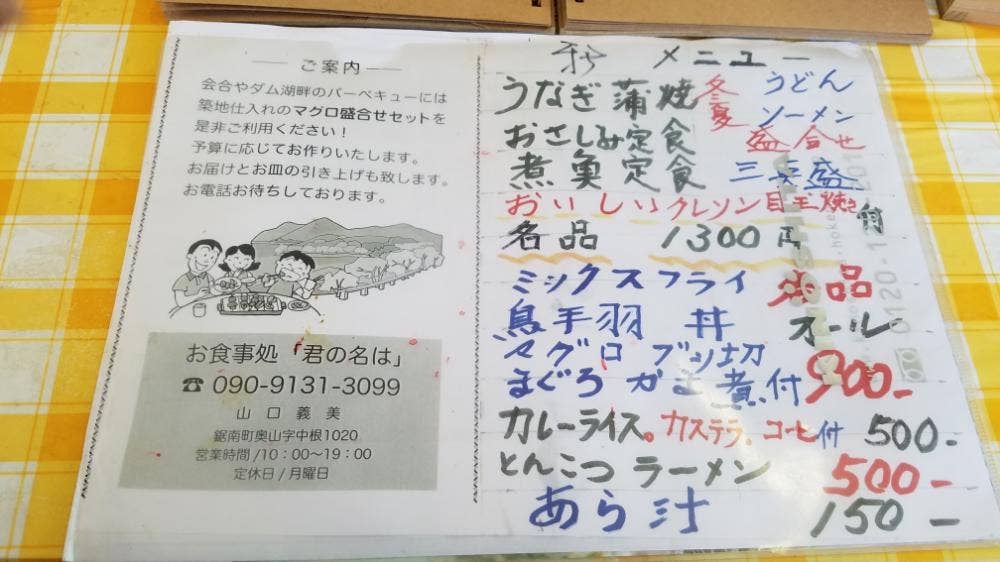 ご案内
会合やダム湖畔のバーベキューには
築地仕入れのマグロ盛合せセットを
是非ご利用ください！
予算に応じてお作りいたします。
お届けとお皿の引き上げも致します。
お電話お待ちしております。
お食事処「君の名は」
☎ 090-9131-3099
山口義美
鋸南町奥山字中根1020
営業時間/10：00～19：00
定休日/月曜日
メニュー
うなぎ蒲焼 冬 うどん
夏 ソーメン
おさしみ定食 盛合せ
煮魚定食 三点盛
おいしいクレソン目玉焼き付
名品 1300円
ミックスフライ 品
鳥手羽 丼 オール
マグロ ブツ切
まぐろ かま煮付 900-
カレーライス。カステラ。コーヒ付 500-
とんこつ ラーメン 500-
あら汁 150-
0120-1